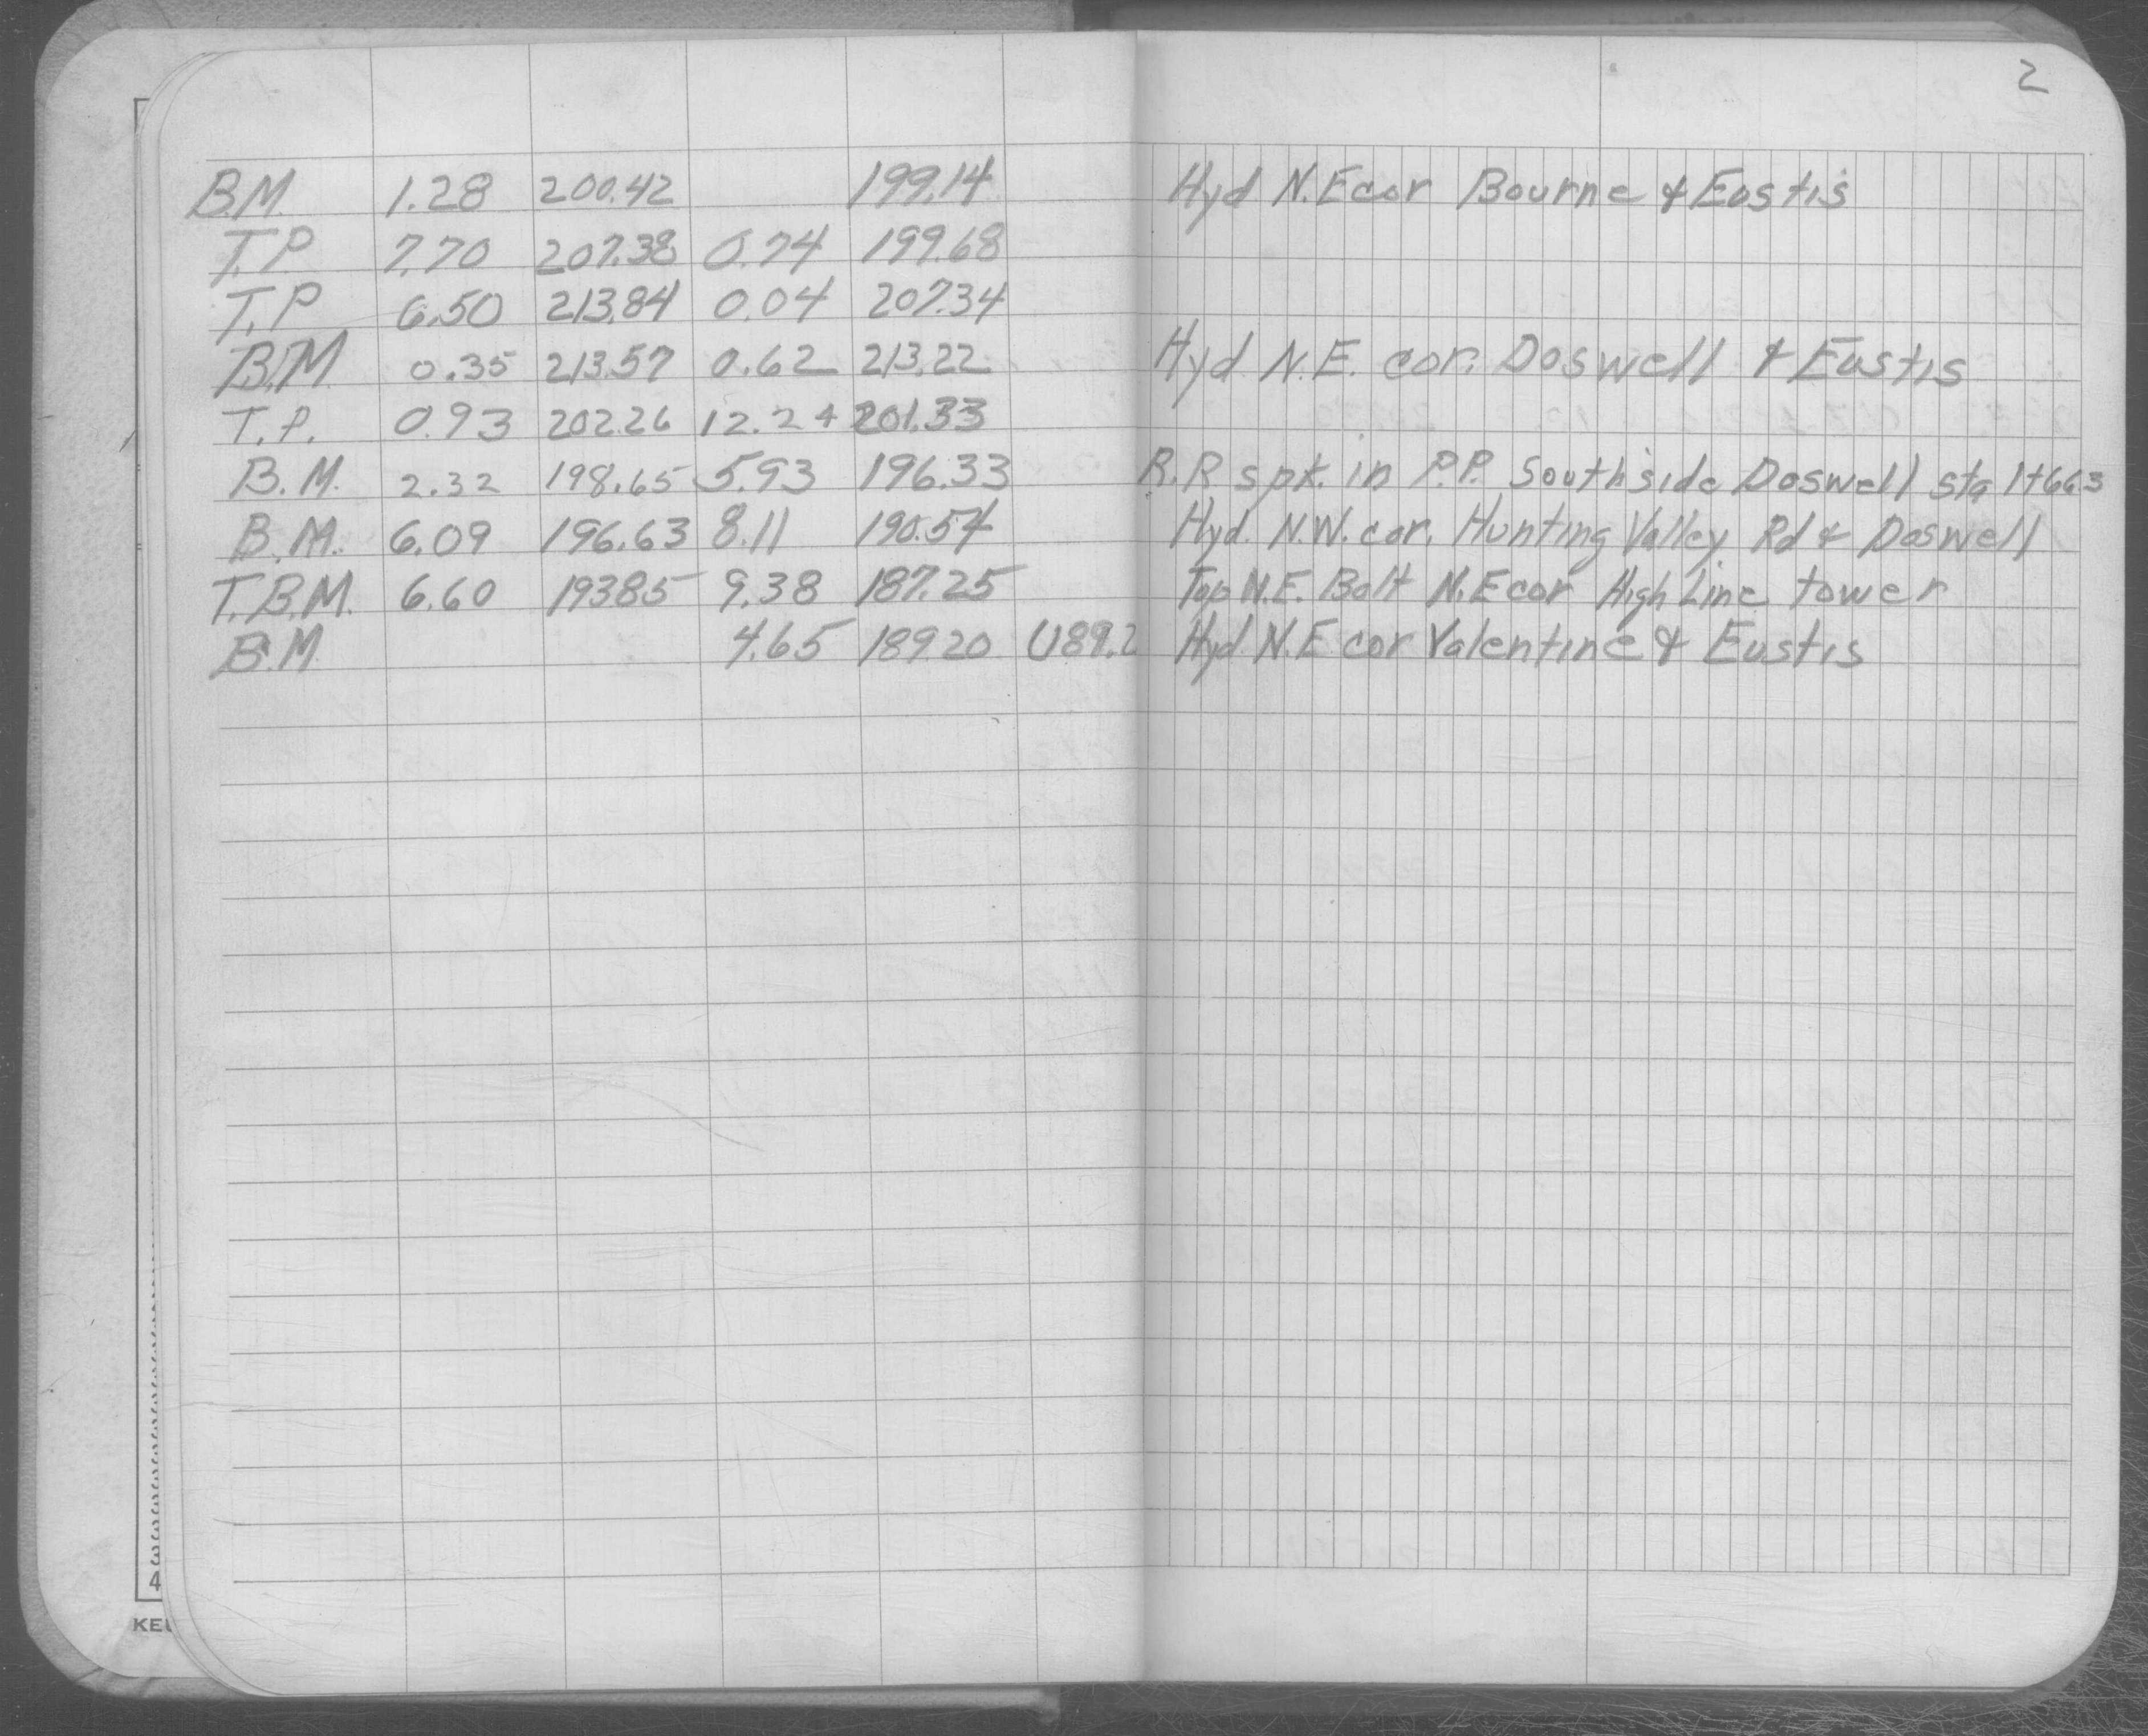 2
B.M. 1.28 200.42 199.14 Hyd N.E cor Bourne & Eustis
T.P. 7.70 207.38 0.74 199.68
T.P 6.50 213.84 0.04 207.34
B.M. 0.35 213.57 0.62 213.22 Hyd. N.E. cor. Doswell & Eustis
T.P. 0.93 202.26 12.24 201.33
B.M. 2.32 198.65 5.93 196.33 R.R spk. in P.P. South side Doswell sta 1+66.3
B.M. 6.09 196.63 8.11 190.54 Hyd. N.W. cor. Hunting Valley Rd & Doswell
T.B.M. 6.60 193.85 9.38 187.25 Top N.E. Bolt N.E cor High Line tower
B.M 4.65 189.20 (189.2 Hyd N.E cor Valentine & Eustis
4
KEU